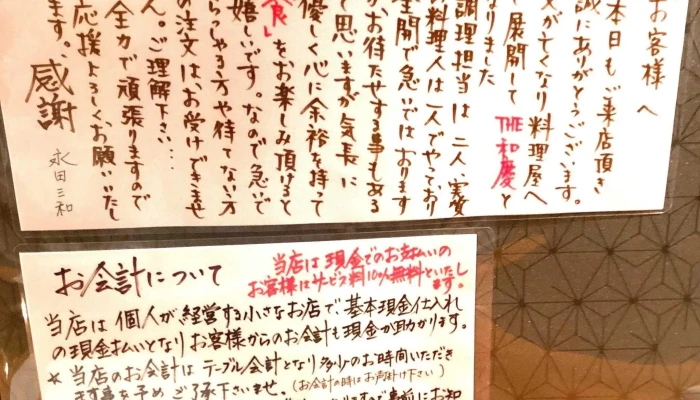 お客様へ
本日もご来店頂き
誠にありがとうございます。
父が亡くなり料理屋へ
と展開して THE和慶と
なりました
調理担当は二人、実質
の料理人は一人でやっており
全開で急いではおります
がお待たせする事もある
と思いますが気長に
優しく心に余裕を持って
食」をお楽しみ頂けると
嬉しいです。なので急いで
らっしゃる方や待てない方
の注文は、お受けできませ
ん。ご理解下さい...
全力で頑張りますので
応援よろしくお願いいたし
ます。
感謝
永田三和
お会計について
当店は現金でのお支払いの
お客様はサービス料10%無料といたし
ます。
当店は個人が経営する小さなお店で、基本現金仕入れ
の現金払いとなりお客様からのお会計も現金が助かります。
* 当店のお会計はテーブル会計となり多少のお時間いただき
ます事を予めご了承下さいませ。(お会計の時はお声掛け下さい)
事前にお知